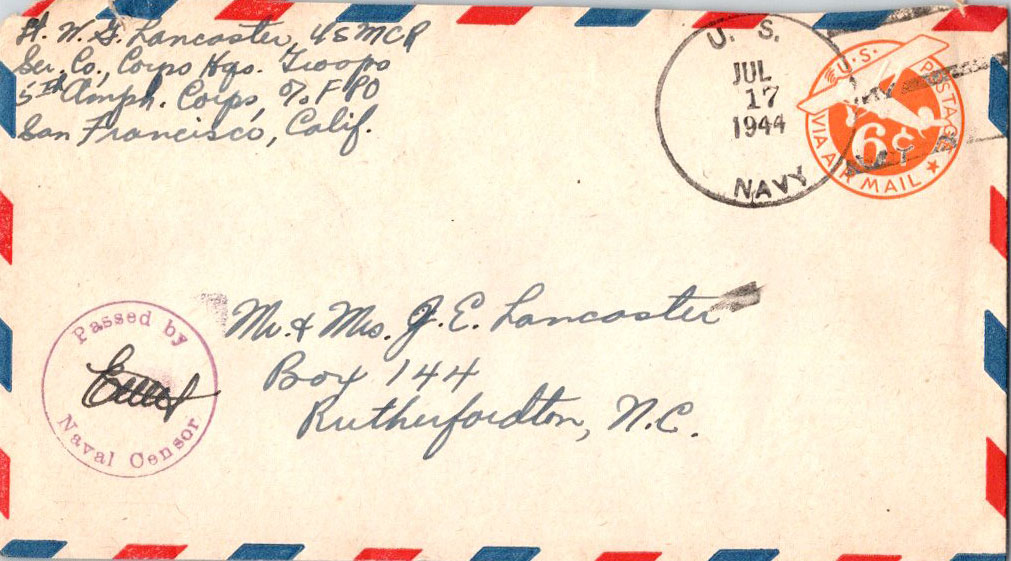 Lt. W. G. Lancaster, USMCR
Ser. Co., Corps Hqs. Troops
5th Amph. Corps, c/o F P O
San Francisco, Calif.
U. S.
JUL
17
1944
NAVY
U.S. POSTAGE
6¢
VIA AIR MAIL
Passed by
Naval Censor
Mr. & Mrs. J. E. Lancaster
Box 144
Rutherfordton, N.C.